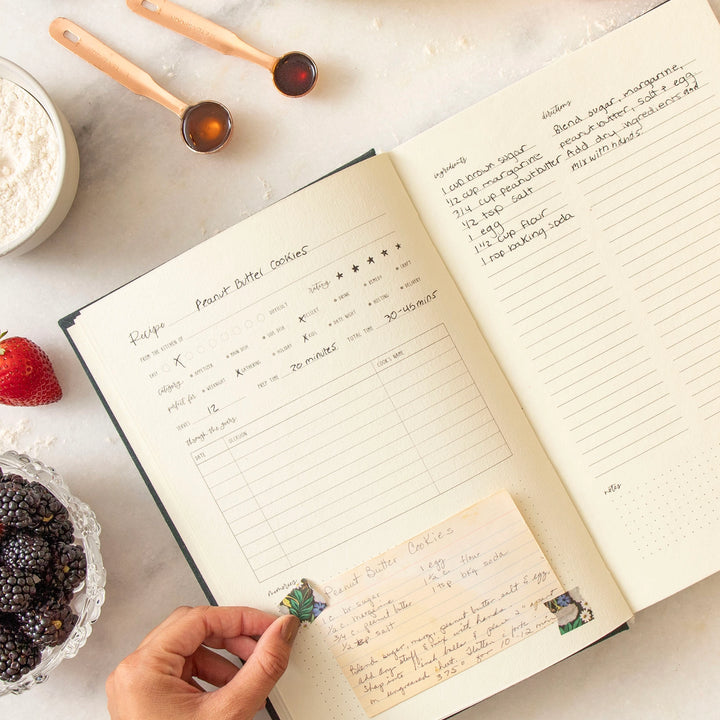 Recipe Peanut Butter Cookies
FROM THE KITCHEN OF
rating ★ ★ ★ ★ ★
EASY X DIFFICULT
category • APPETIZER • MAIN DISH • SIDE DISH X DESSERT • DRINK • REMEDY • CRAFT
perfect for • WEEKNIGHT X GATHERING • HOLIDAY X KIDS • DATE NIGHT • HOSTING • DELIVERY
SERVES 12 PREP TIME 20 minutes TOTAL TIME 30-45 mins
through the years
DATE OCCASION COOK'S NAME
memories
Peanut Butter Cookies
1 c. br. sugar 1 egg
1/2 c. margarine 1 1/2 c. flour
3/4 c. peanut butter 1 tsp bkg soda
1/2 tsp salt
Blend sugar, marg, peanut butter, salt & egg.
add dry stuff & mix with hands.
Shape into balls & place 2" apart
on ungreased sheet. Flatten c fork
375° for 10-12 min
ingredients
1 cup brown sugar
1/2 cup margarine
3/4 cup peanut butter
1/2 tsp salt
1 egg
1 1/2 cup flour
1 tsp baking soda
directions
Blend sugar, margarine,
peanut butter, salt & egg
Add dry ingredients and
mix with hands
notes